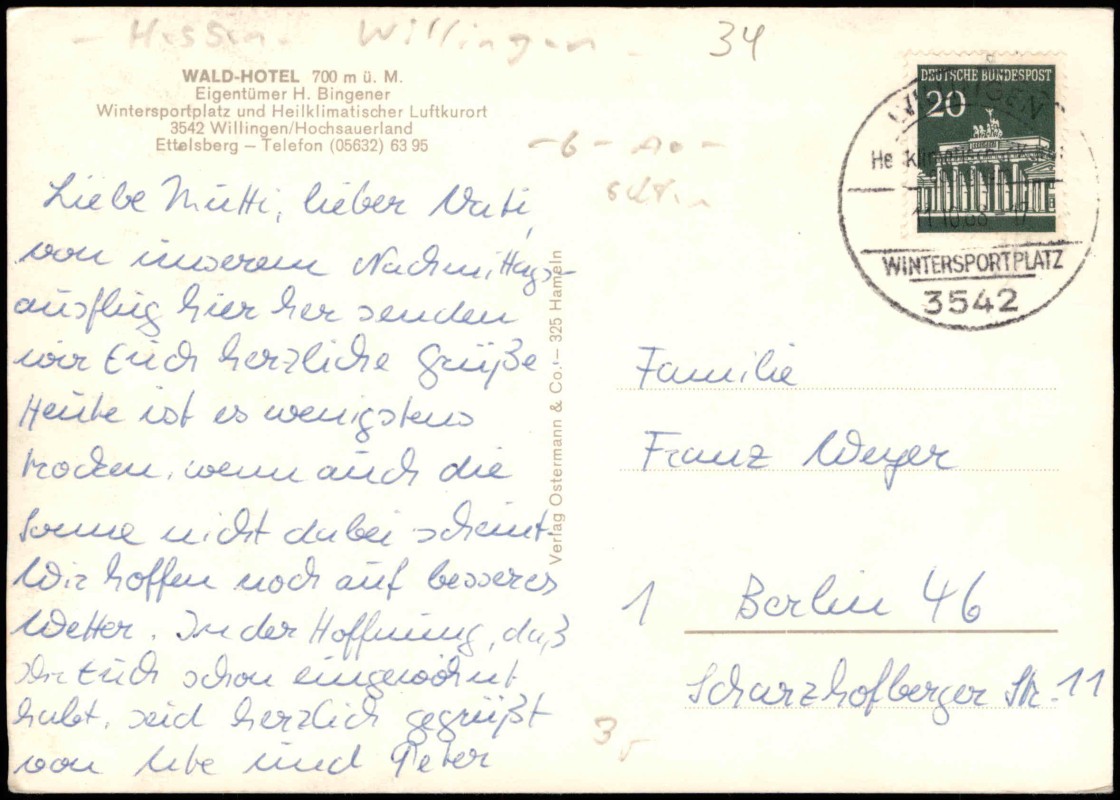 - Hessen - Willingen -
34
WALD-HOTEL 700 m ü. M.
Eigentümer H. Bingener
Wintersportplatz und Heilklimatischer Luftkurort
3542 Willingen/Hochsauerland
Ettelsberg – Telefon (05632) 63 95
Liebe Mutti, lieber Vati,
von unserem Nachmittags-
ausflug hier her senden
wir Euch herzliche Grüße
Heute ist es wenigstens
trocken, wenn auch die
Sonne nicht dabei scheint.
Wir hoffen noch auf besseres
Wetter. In der Hoffnung, daß
Ihr Euch schon eingewöhnt
habt, seid herzlich gegrüßt
von Ube und Peter
Verlag Ostermann & Co. – 325 Hameln
DEUTSCHE BUNDESPOST
20
WILLINGEN
11.10.68 17
WINTERSPORTPLATZ
3542
Familie
Franz Weyer
1 Berlin 46
Scharzhofberger Str. 11